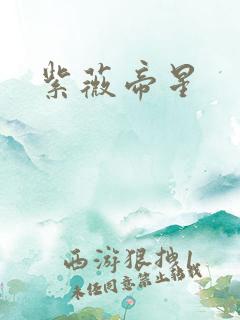 紫薇帝星
西游狠拽\
未经同意禁止转载